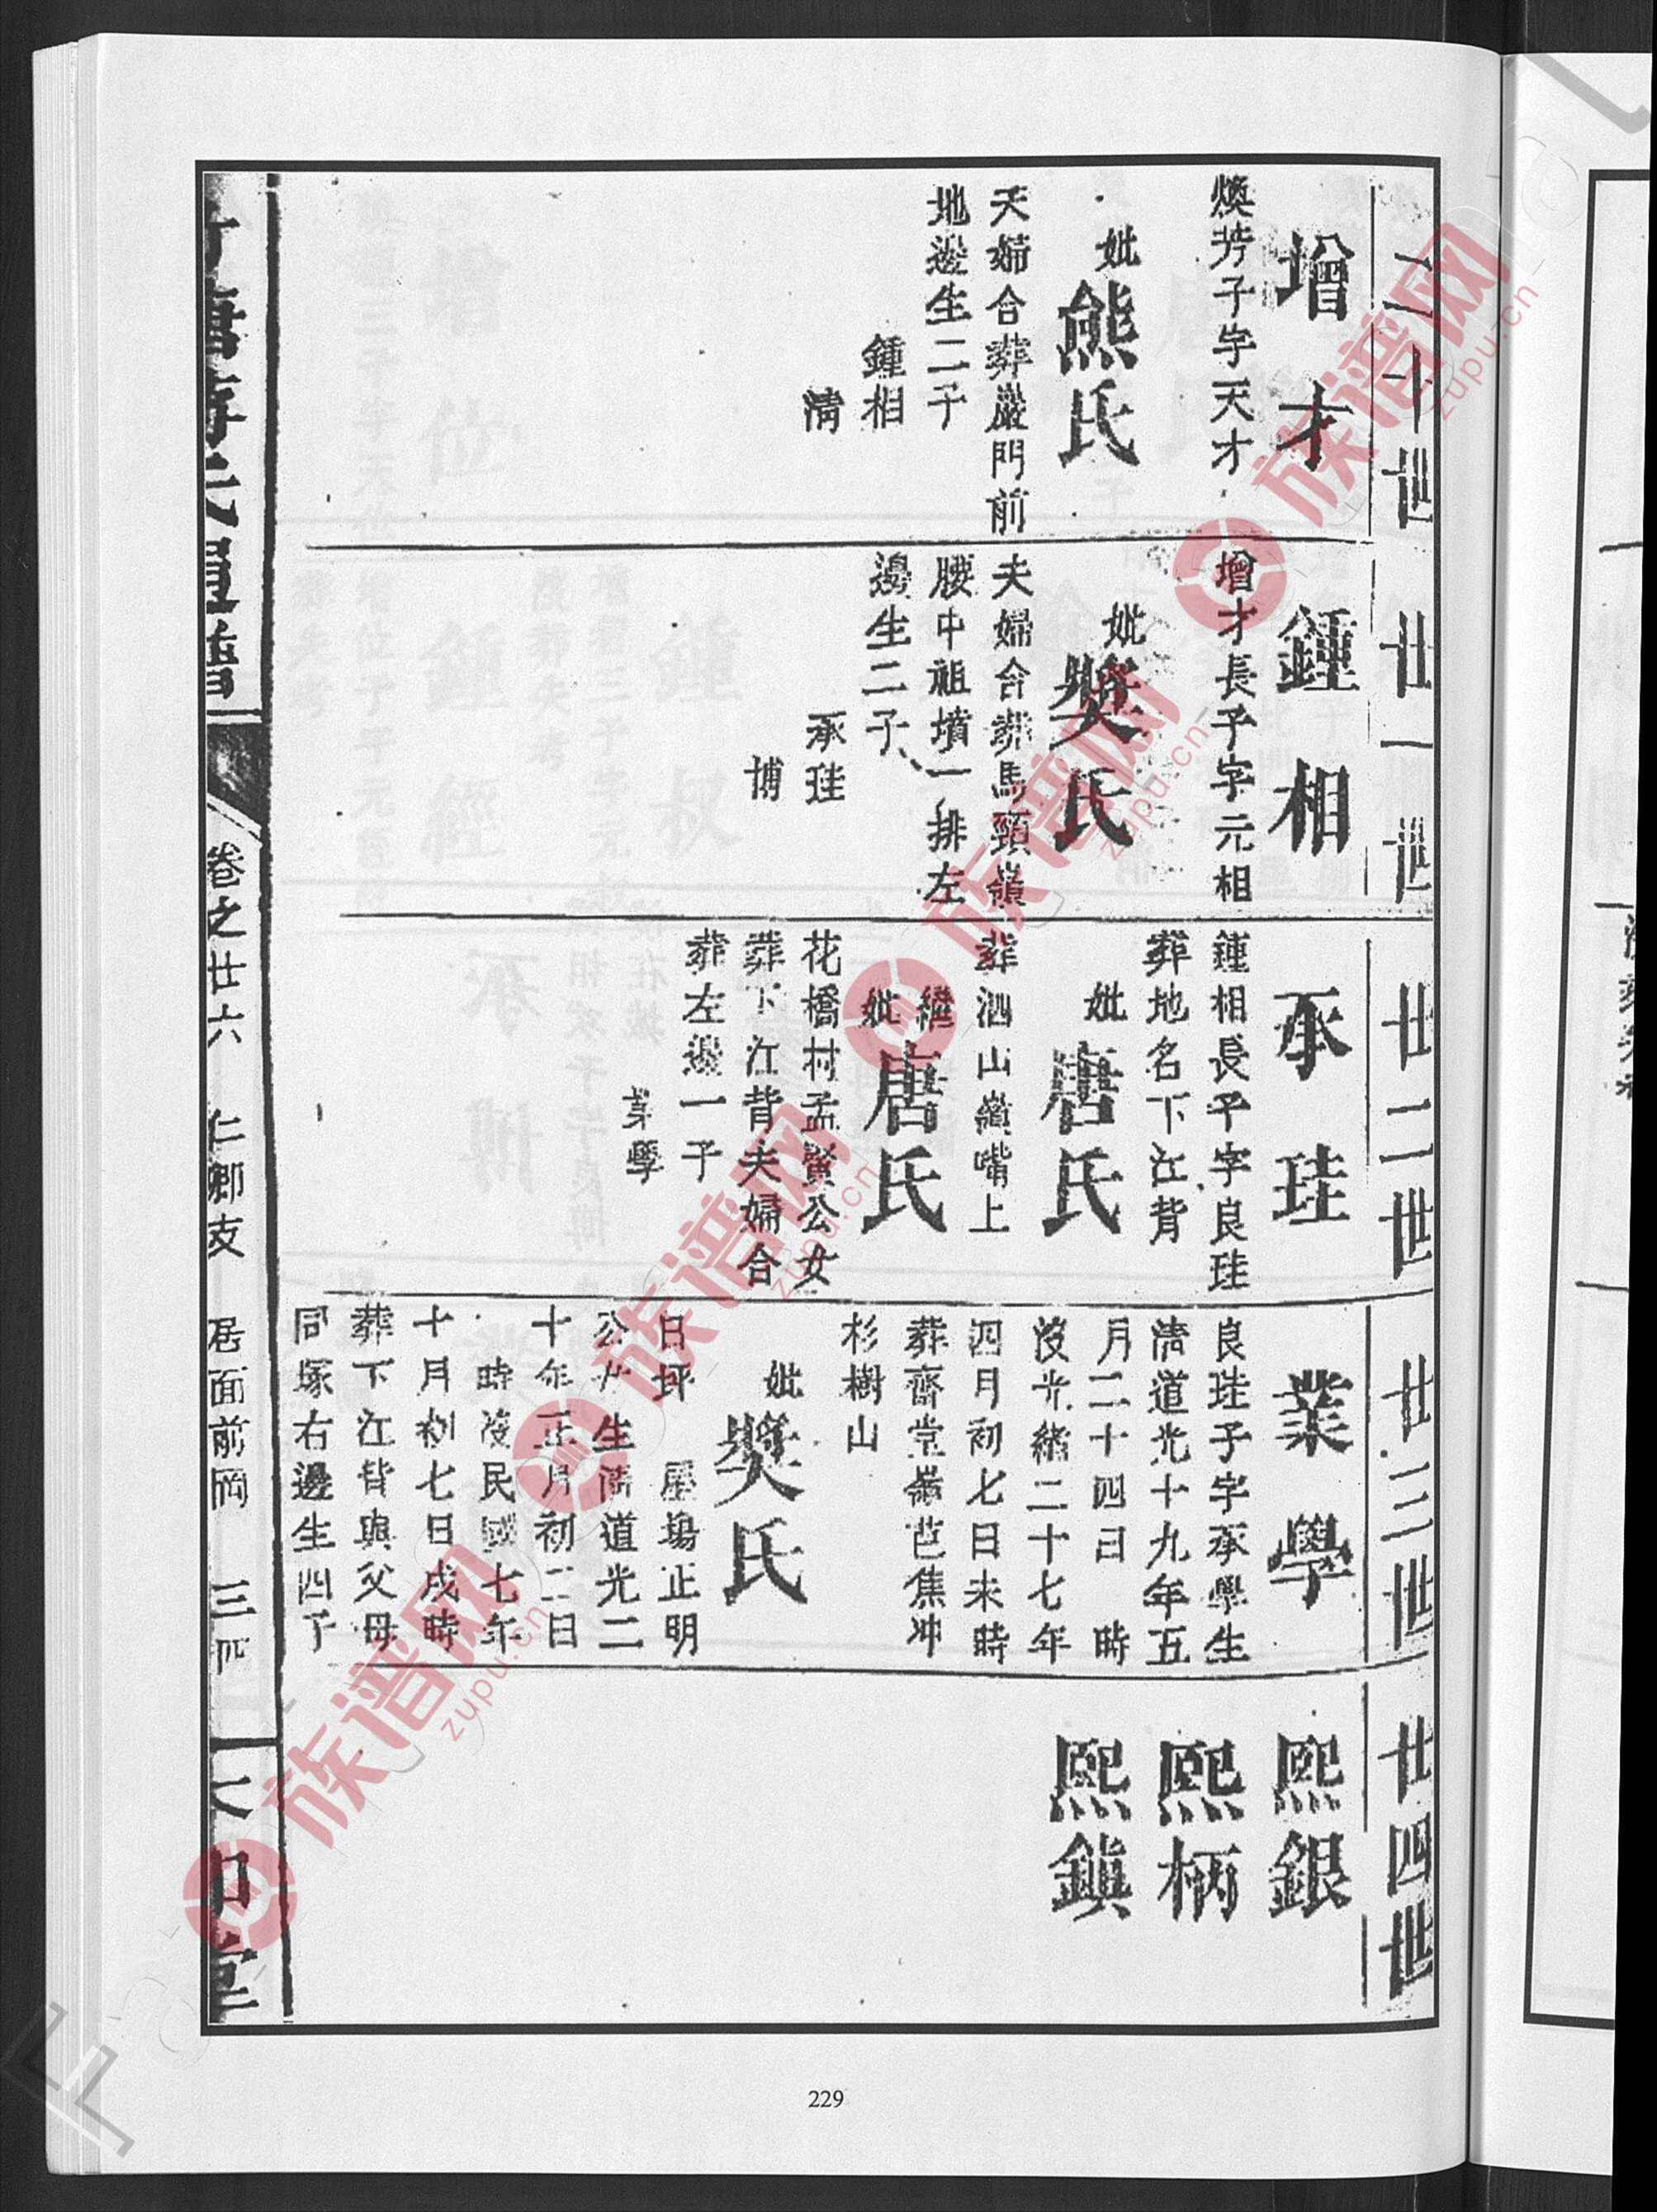 二十世
增才
煥芳子字天才
妣
熊氏
天婦合葬巖門前
地邊生二子
鍾相
清
廿一世
鍾相
增才長子字元相
妣
樊氏
夫婦合葬馬頸嶺
腰中祖墳一排左
邊生二子
承珪
博
廿二世
承珪
鍾相長子字良珪
葬地名下江背
妣
唐氏
葬泗山嶺嘴上
繼妣
唐氏
花橋村孟賢公女
葬下江背夫婦合
葬左邊一子
業學
廿三世
業學
良珪子字承學生
清道光十九年五
月二十四日 時
沒光緒二十七年
四月初七日未時
葬齋堂嶺芭焦冲
杉樹山
妣
樊氏
日坪 屋場正明
公女生清道光二
十年正月初二日
時沒民國七年
十月初七日戌時
葬下江背與父母
同塚右邊生四子
廿四世
熙銀
熙柄
熙鎮
卷之廿六 仁卿支 居面前岡 三四
229
族谱网
zupu.cn
族谱网
zupu.cn
族谱网
zupu.cn
族谱网
zupu.cn